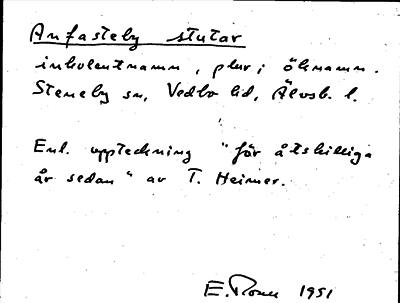 Anfasteby stutar
inbolentnamn, plur; öknamn.
Steneby sn, Vedbo hd, Älvsb. l.
Enl. uppteckning "för åtskilliga
år sedan" av T. Heimer.
E. 1951